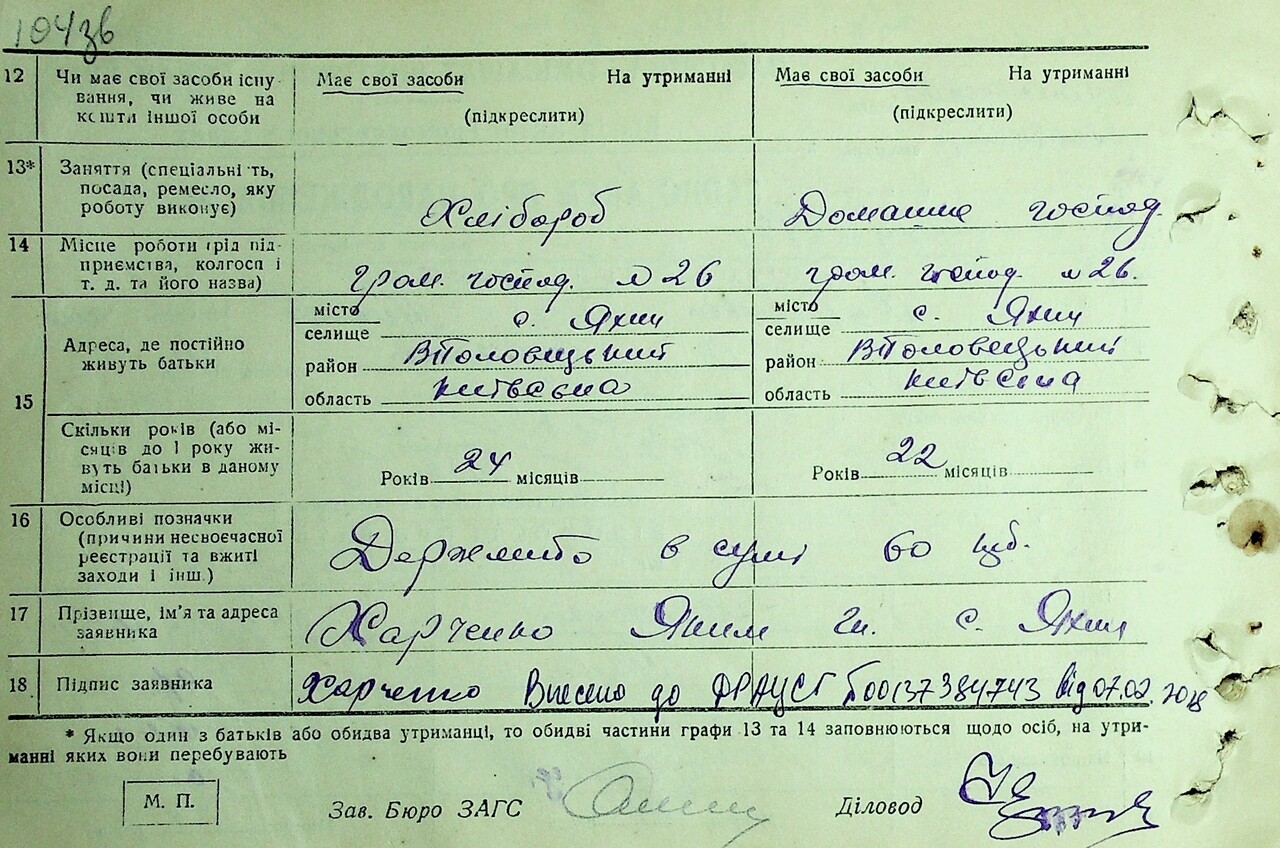 104зв
12 Чи має свої засоби існу- Має свої засоби На утриманні Має свої засоби На утриманні
вання, чи живе на
кошти іншої особи (підкреслити) (підкреслити)
13* Заняття (спеціальні ть,
посада, ремесло, яку
роботу виконує) Хлібороб Домашнє господ.
14 Місце роботи (рід під-
приємства, колгосп і
т. д. та його назва) гром. господ. № 26 гром. господ. № 26.
місто с. Яхни місто с. Яхни
селище селище
Адреса, де постійно
живуть батьки район район
область область
15
Скільки років (або мі-
сяців до 1 року жи-
вуть батьки в даному Років 24 місяців Років 22 місяців
місці)
16 Особливі позначки
(причини несвоєчасної
реєстрації та вжиті
заходи і інш.) Держмито в сумі 60 крб.
17 Прізвище, ім'я та адреса
заявника Харченко Яким с. Яхни
18 Підпис заявника Харченко Внесено до ФРАЦСГ 00137384743 від 07.02.2018
* Якщо один з батьків або обидва утриманці, то обидві частини графи 13 та 14 заповнюються щодо осіб, на утри-
манні яких вони перебувають
М. П. Зав. Бюро ЗАГС Діловод